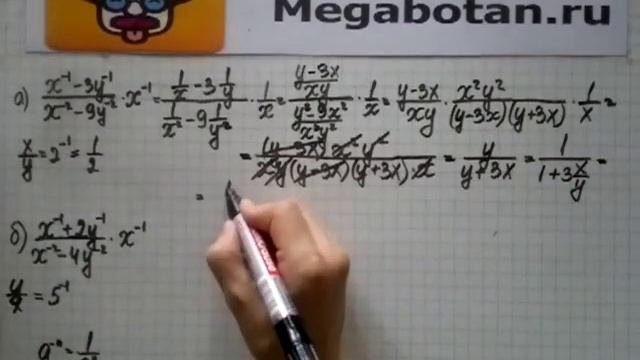 Megabotan.ru
а) (x⁻¹-3y⁻¹)/(x⁻²-9y⁻²) · x⁻¹ = (1/x - 3 1/y)/(1/x² - 9 1/y²) · 1/x = ((y-3x)/(xy))/((y²-9x²)/(x²y²)) · 1/x = (y-3x)/(xy) · (x²y²)/((y-3x)(y+3x)) · 1/x =
x/y = 2⁻¹ = 1/2
= ((y-3x) x² y²)/(xy(y-3x)(y+3x)·x) = y/(y+3x) = 1/(1+3 x/y) =
=
б) (x⁻¹+2y⁻¹)/(x⁻²-4y⁻²) · x⁻¹
y/x = 5⁻¹